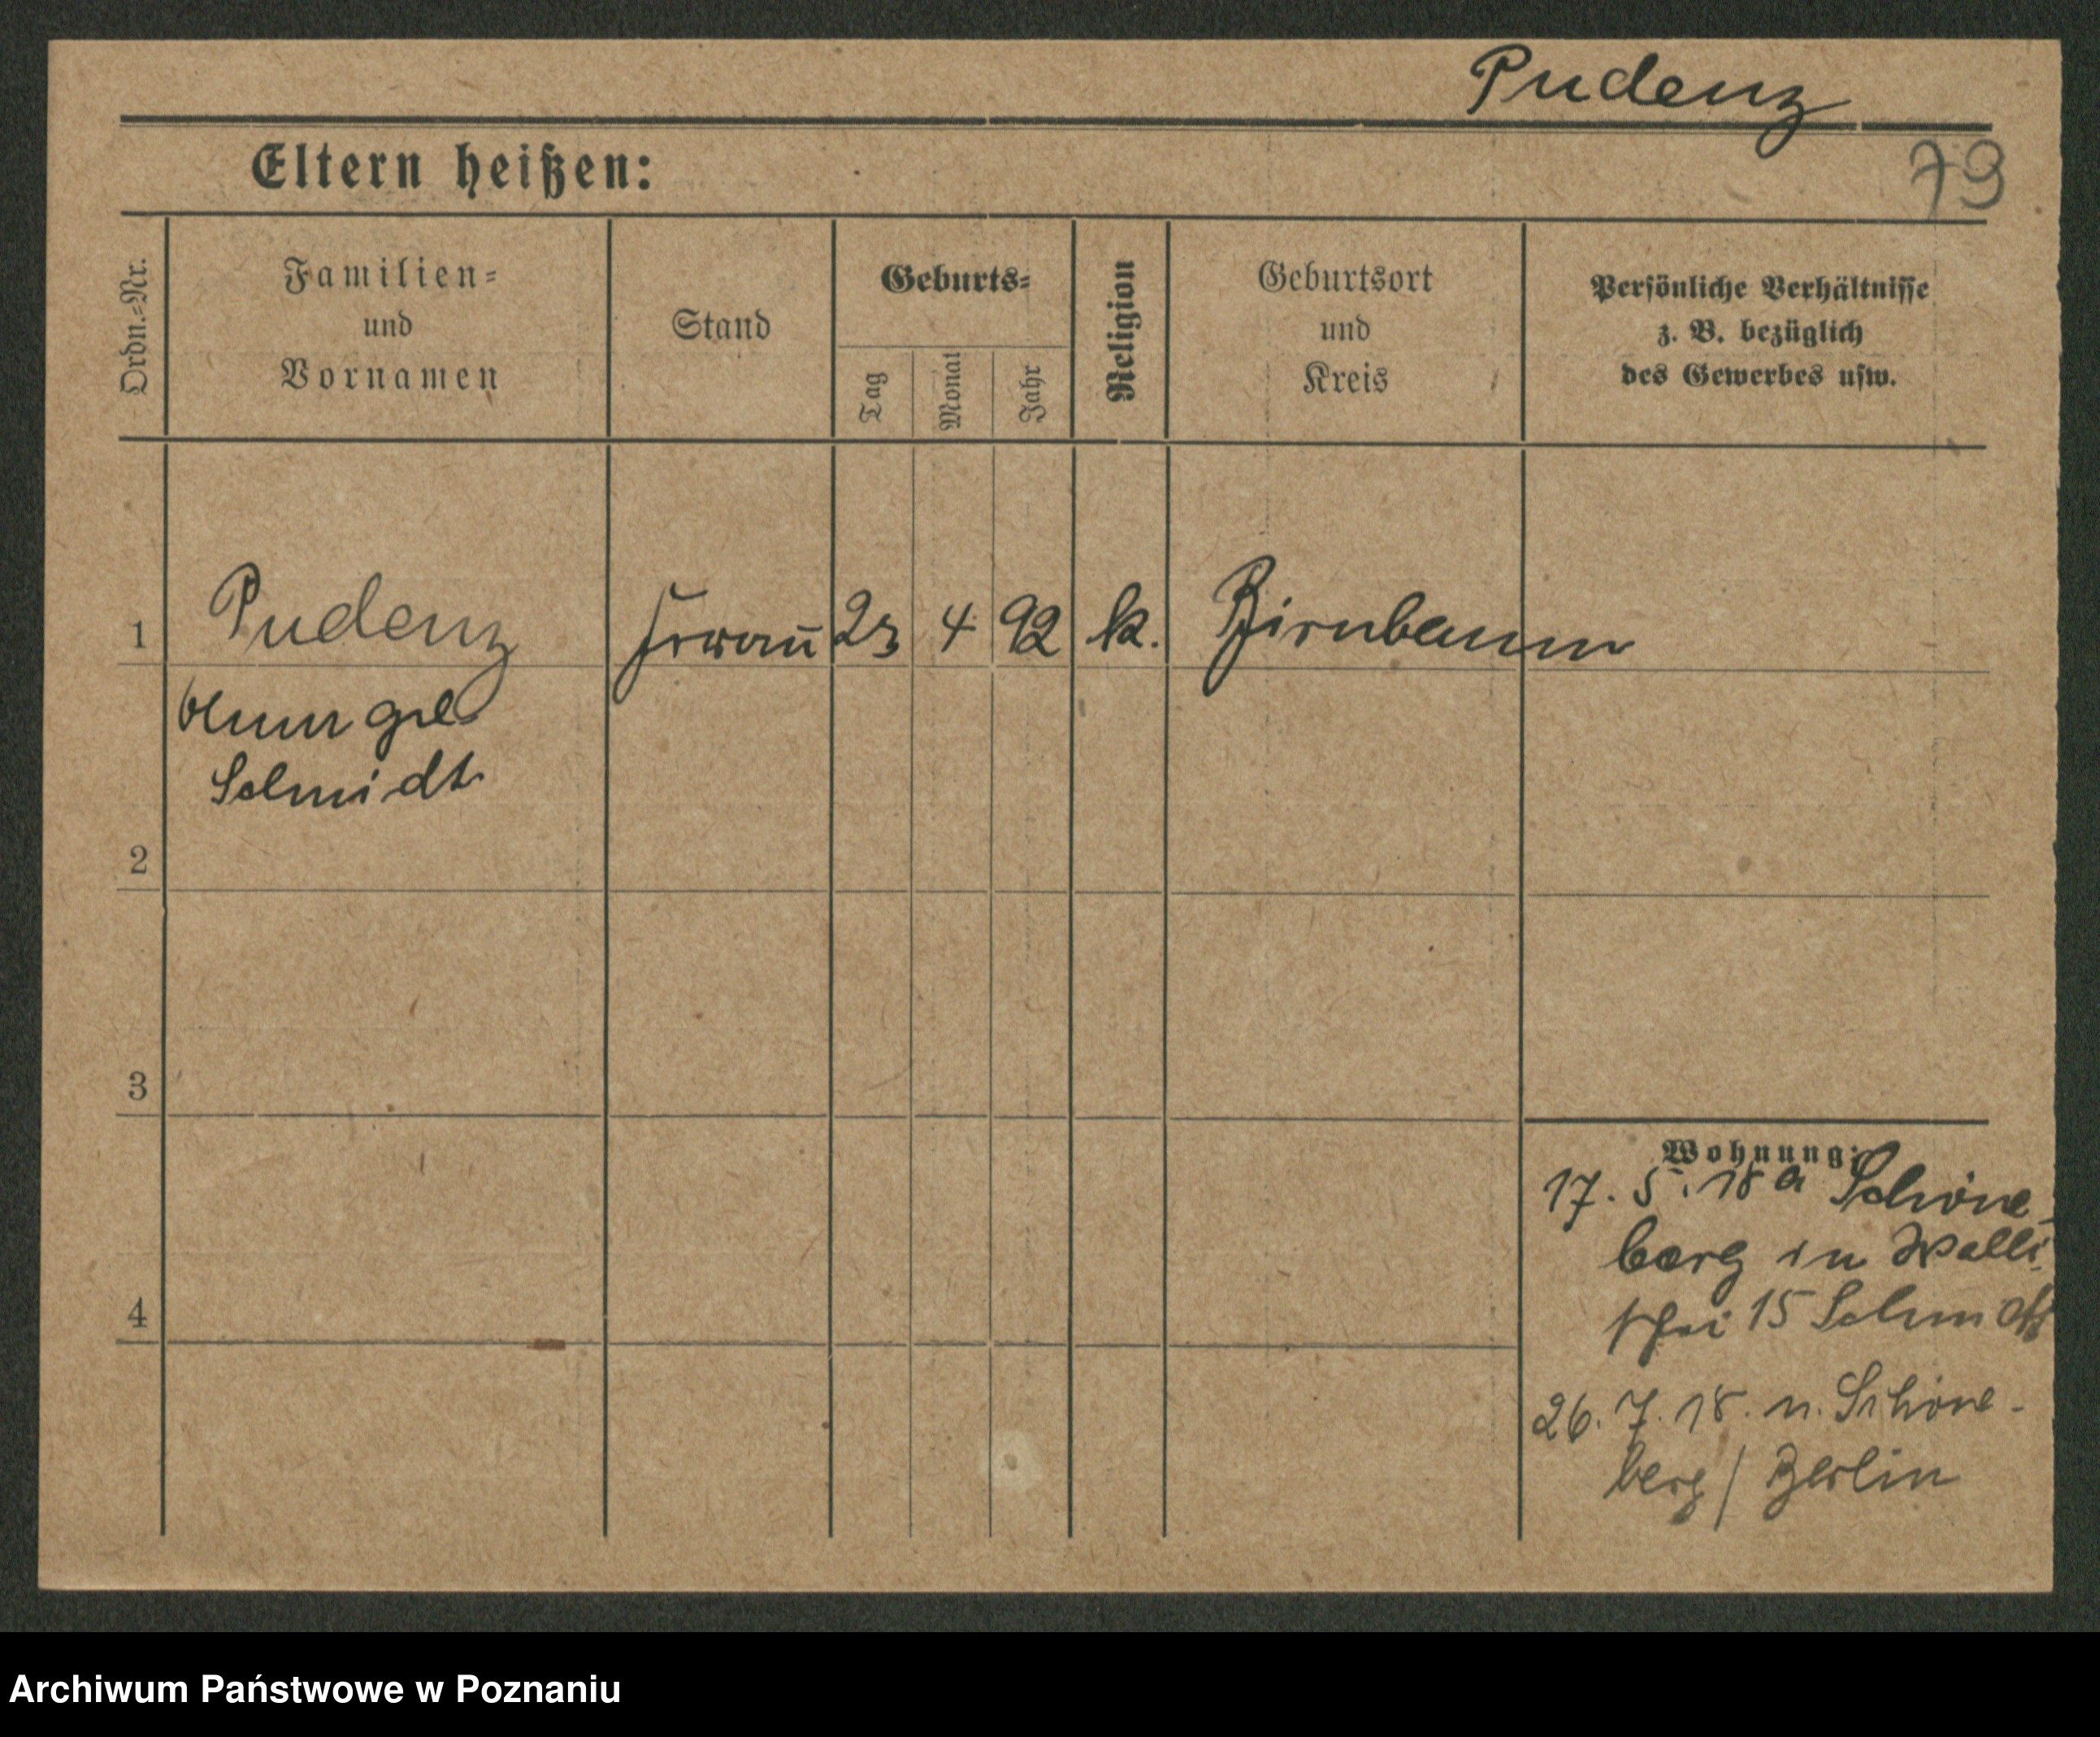 Pudenz
79
Eltern heißen:
Ordn.-Nr.
Familien-
und
Vornamen
Stand
Geburts-
Tag
Monat
Jahr
Religion
Geburtsort
und
Kreis
Persönliche Verhältnisse
z. B. bezüglich
des Gewerbes usw.
1 Pudenz 23 4 92 k. Birnbaum
Schmidt
2
3
4
Wohnung:
17. 5. 18 a Schöne-
berg in Walli
15
26. 7. 18. n. Schöne-
berg / Berlin
Archiwum Państwowe w Poznaniu